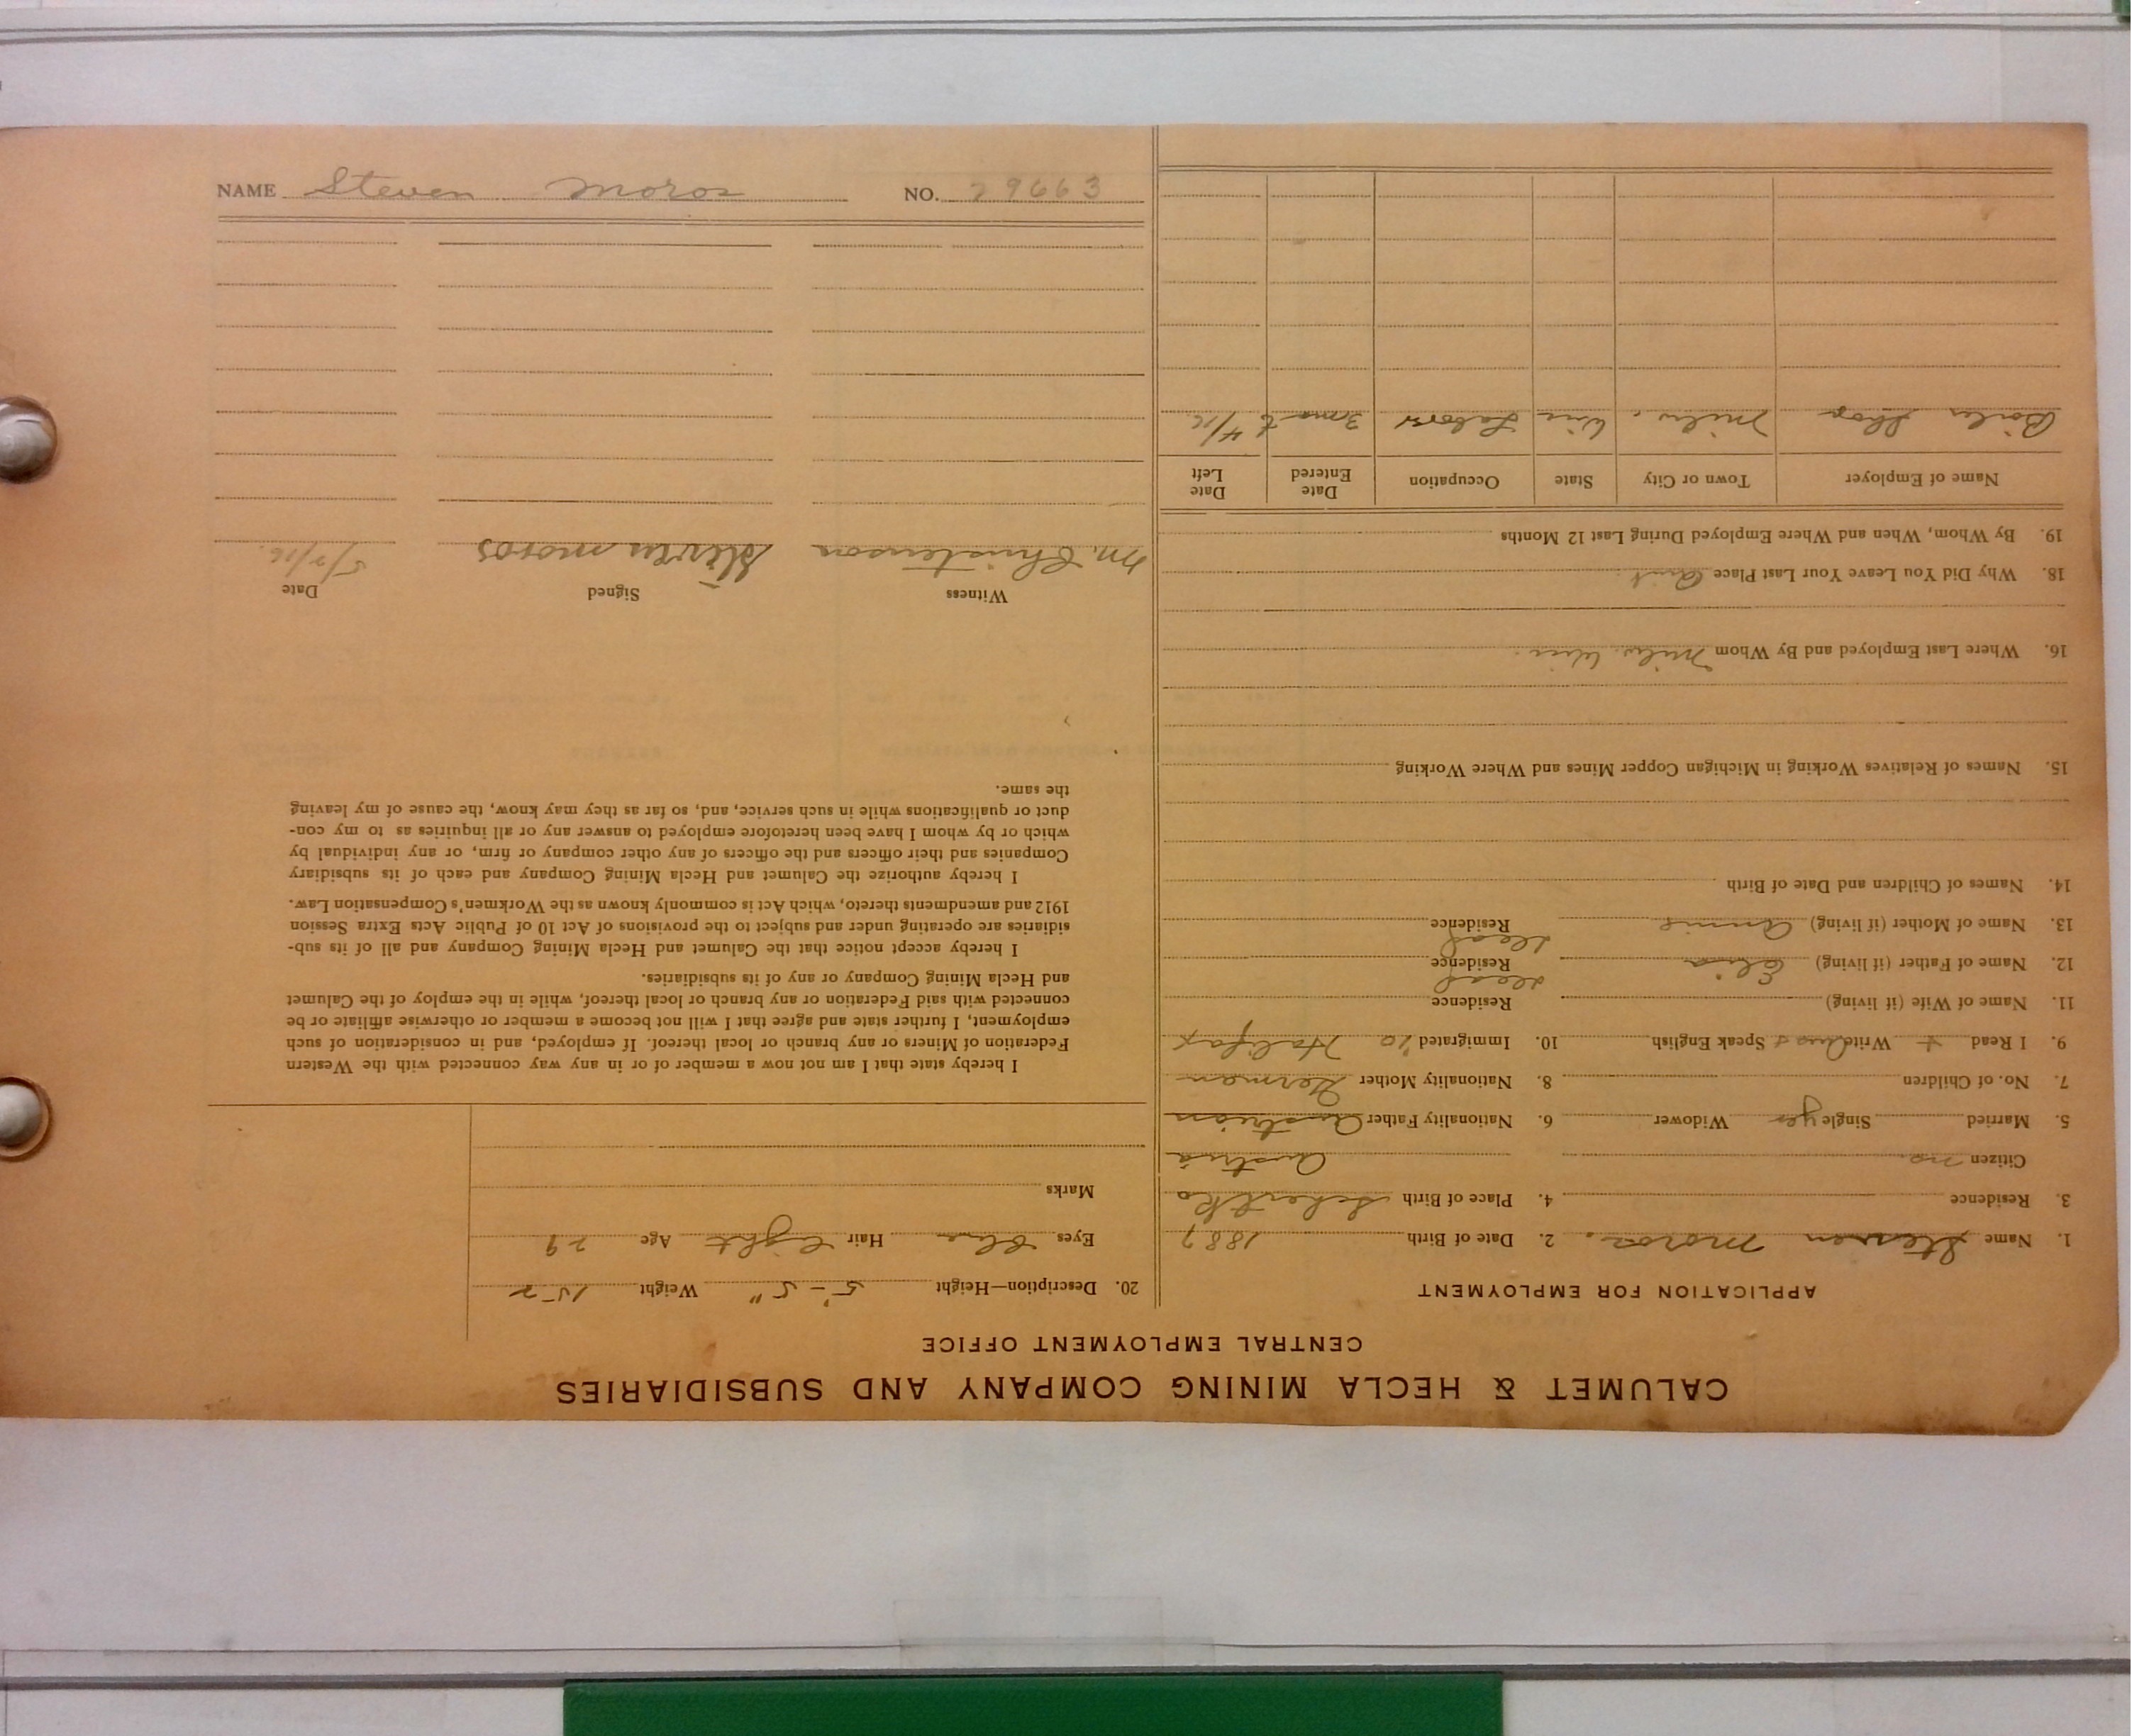 NAME Steven Moros NO. 29663
CALUMET & HECLA MINING COMPANY AND SUBSIDIARIES
CENTRAL EMPLOYMENT OFFICE
APPLICATION FOR EMPLOYMENT
1. Name Steven Moros. 2. Date of Birth 1887
3. Residence 4. Place of Birth
Citizen no. Austria
5. Married Single yes Widower 6. Nationality Father Austrian
7. No. of Children 8. Nationality Mother German
9. I Read + Write Aust + Speak English 10. Immigrated '10 Halifax
11. Name of Wife (if living) Residence
12. Name of Father (if living) Elia Residence dead
13. Name of Mother (if living) Annie Residence dead
14. Names of Children and Date of Birth
15. Names of Relatives Working in Michigan Copper Mines and Where Working
16. Where Last Employed and By Whom Milw. Wis.
18. Why Did You Leave Your Last Place Quit
19. By Whom, When and Where Employed During Last 12 Months
Name of Employer Town or City State Occupation Date Entered Date Left
Boiler Shop Milw. Wis Labor 3 mos to 4/16
20. Description—Height 5'-5" Weight 152
Eyes blue Hair light Age 29
Marks
I hereby state that I am not now a member of or in any way connected with the Western
Federation of Miners or any branch or local thereof. If employed, and in consideration of such
employment, I further state and agree that I will not become a member or otherwise affiliate or be
connected with said Federation or any branch or local thereof, while in the employ of the Calumet
and Hecla Mining Company or any of its subsidiaries.
I hereby accept notice that the Calumet and Hecla Mining Company and all of its sub-
sidiaries are operating under and subject to the provisions of Act 10 of Public Acts Extra Session
1912 and amendments thereto, which Act is commonly known as the Workmen's Compensation Law.
I hereby authorize the Calumet and Hecla Mining Company and each of its subsidiary
Companies and their officers and the officers of any other company or firm, or any individual by
which or by whom I have been heretofore employed to answer any or all inquiries as to my con-
duct or qualifications while in such service, and, so far as they may know, the cause of my leaving
the same.
Witness Signed Date
M. Christenson Steven moros 5/2/16.